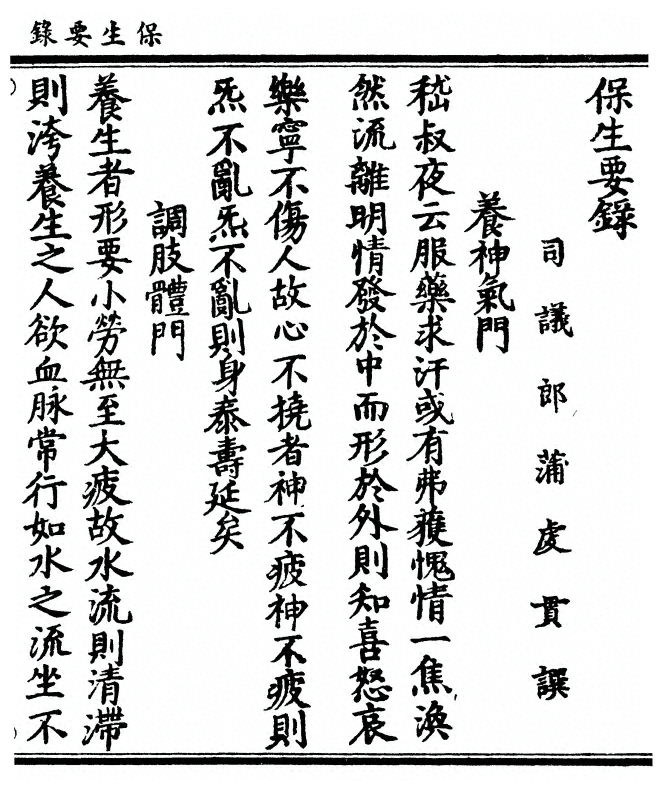 保生要錄
保生要錄
司議郎蒲虔貫譔
養神氣門
嵇叔夜云服藥求汗或有弗獲愧情一焦渙
然流離明情發於中而形於外則知喜怒哀
樂寧不傷人故心不撓者神不疲神不疲則
炁不亂炁不亂則身泰壽延矣
調肢體門
養生者形要小勞無至大疲故水流則清滯
則洿養生之人欲血脉常行如水之流坐不